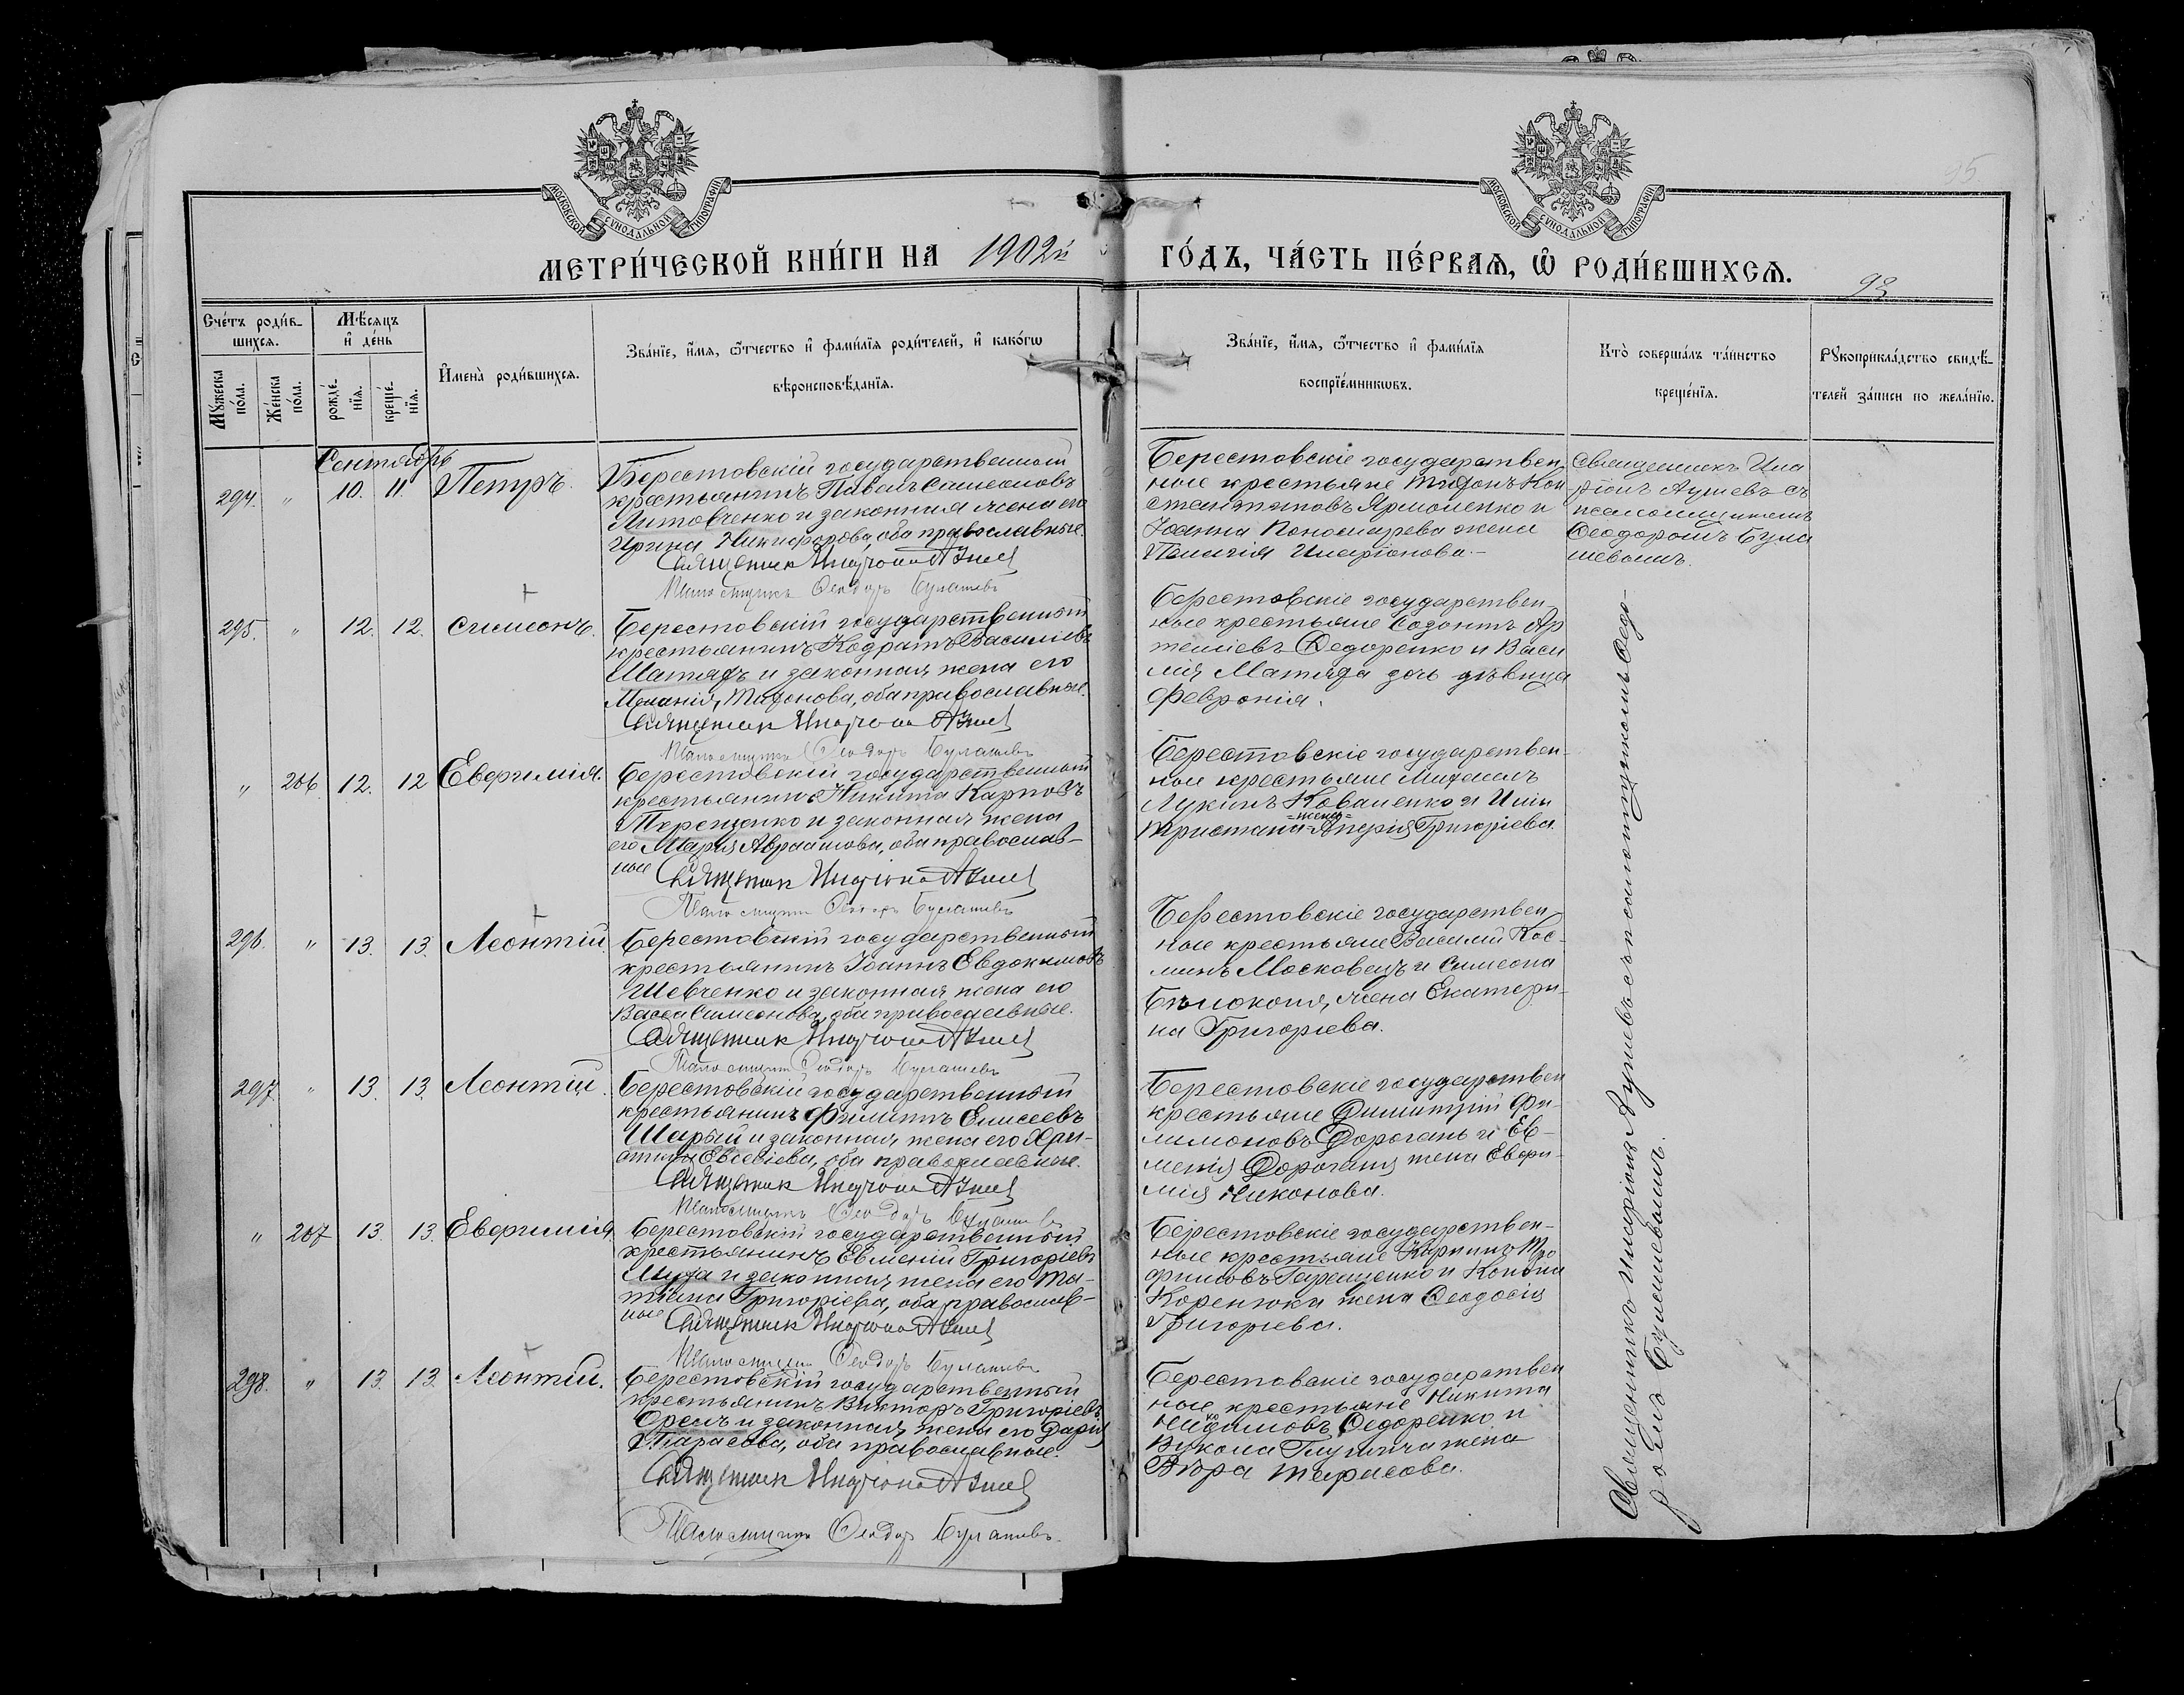 МОСКОВСКОЙ СѴНОДАЛЬНОЙ ТИПОГРАФІИ
МОСКОВСКОЙ СѴНОДАЛЬНОЙ ТИПОГРАФІИ
95
МЕТРИ́ЧЕСКОЙ КНИ́ГИ НА 1902й ГО́ДЪ, ЧА́СТЬ ПЕ́РВАѦ, Ѡ҆ РОДИ́ВШИХСѦ.
93
Сче́тъ роди́в-
шихсѧ.
Мꙋ́жеска
по́ла.
Же́нска
по́ла.
Мѣ́сѧцъ
и҆ де́нь
рожде́-
нїѧ.
креще́-
нїѧ.
И҆мена̀ роди́вшихсѧ.
Зва́нїе, и҆́мѧ, ѻ҆́тчество и҆ фами́лїѧ роди́телей, и҆ како́гѡ
вѣроисповѣ́данїѧ.
Зва́нїе, и҆́мѧ, ѻ҆́тчество и҆ фами́лїѧ
воспрїе́мникѡвъ.
Кто̀ соверша́лъ та́инство
креще́нїѧ.
Рꙋкоприкла́дство свидѣ́-
телей за́писи по жела́нїю.
Сентябрь
294. " 10. 11. Петръ.
Берестовскій государственный
крестьянинъ Павелъ Симеоновъ
Литовченко и законная жена его
Ирина Никифорова, оба православные.
Священник Иларіон
Псаломщикъ Феодоръ Булашевъ
Берестовскіе государствен-
ные крестьяне Тифонъ Кон
стантиновъ Ярмоленко и
Іоанна Пономарева жена
Иларіонова.-
Священникъ Ила
ріонъ съ
псаломщикомъ
Феодоромъ Була
шевымъ.
295. " 12. 12. Симеонъ.
Берестовскій государственный
крестьянинъ Кодратъ Василіевъ
и законная жена его
Меланія Тифонова, оба православные.
Священник Иларіон
Псаломщикъ Феодоръ Булашевъ
Берестовскіе государствен-
ные крестьяне Созонтъ Ар
теміевъ Федоренко и Васи
лія дочь дѣвица
Февронія.
" 206 12. 12 Евфимія.
Берестовскій государственный
крестьянинъ Никита Карповъ
Терещенко и законная жена
его Марія Авраамова, оба православ-
ные Священник Иларіон
Псаломщикъ Феодоръ Булашевъ
Берестовскіе государствен-
ные крестьяне Михаилъ
Лукинъ Коваленко и Ильи
=жена=
Григоріева.
296. " 13. 13. Леонтій
Берестовскій государственный
крестьянинъ Іоаннъ Евдокимовъ
Шевченко и законная жена его
Васса Симеонова, оба православные.
Священник Иларіон
Псаломщикъ Феодоръ Булашевъ
Берестовскіе государствен-
ные крестьяне Василій Кос-
минъ Московецъ и Симеона
Бѣлоконя, жена Екатери-
на Григорьева.
297. " 13. 13. Леонтій.
Берестовскій государственный
крестьянинъ Филиппъ Елисеевъ
Шарый и законная жена его Хри-
стина Евсевіева, оба православные.
Священник Иларіон
Псаломщикъ Феодоръ Булашевъ
Берестовскіе государствен
крестьяне Димитрій Фи-
лимоновъ Дорогань и Ев-
менія Дороганя жена Евфи-
мія Никонова.
" 207 13. 13. Евфимія
Берестовскій государственный
крестьянинъ Евменій Григоріевъ
и законная жена его Та-
тіана Григоріева, оба православ-
ные Священник Иларіон
Псаломщикъ Феодоръ Булашевъ
Берестовскіе государствен-
ные крестьяне Тро
фимовъ и Конона
Коренюка жена Феодосія
Григорьева.
298. " 13. 13. Леонтій.
Берестовскій государственный
крестьянинъ Викторъ Григоріевъ
Орелъ и законная жена его Дарія
Тарасова, оба православные.
Священник Иларіон
Псаломщикъ Феодоръ Булашевъ.
Берестовскіе государствен
ные крестьяне Никита
Федоренко и
Вукола жена
Вѣра Тарасова.
Священникъ Иларіонъ съ псаломщикомъ Фео-
доромъ Булашевымъ.